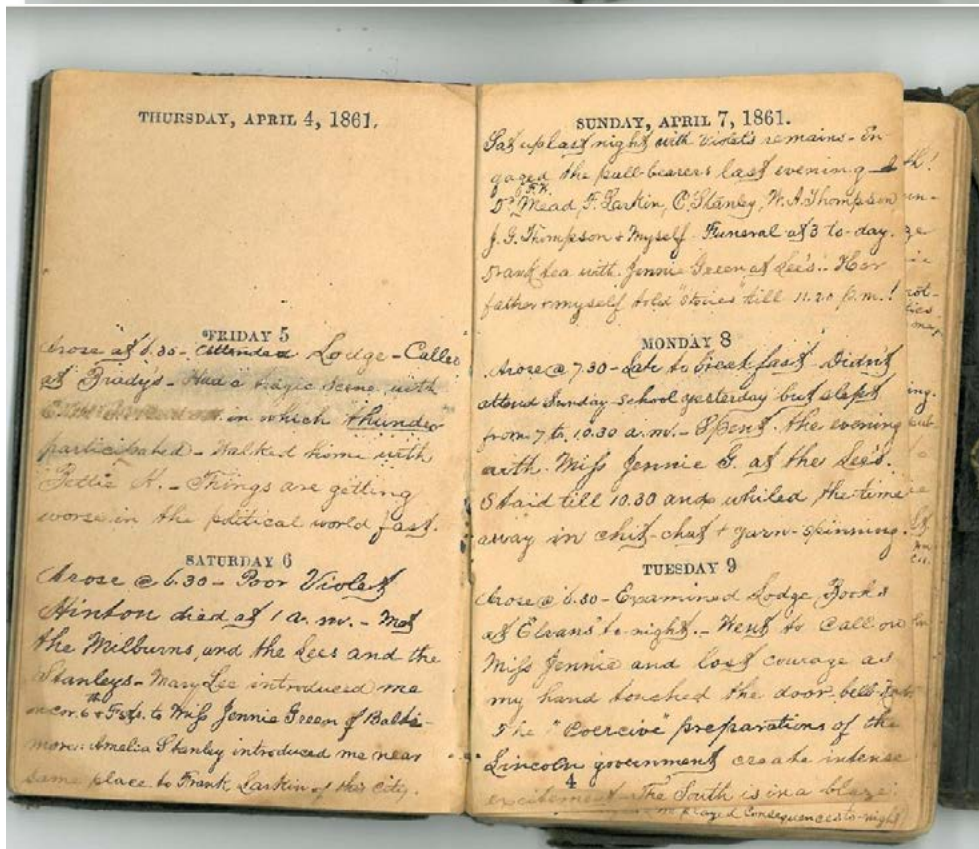 THURSDAY, APRIL 4, 1861.
FRIDAY 5
Arose at 6.30 - Attended Lodge - Called
at Brady's - Had a tragic scene with
in which "thunder"
participated - Walked home with
Pettie K. - Things are getting
worse in the political world fast.
SATURDAY 6
Arose @ 6.30 - Poor Violet
Hinton died at 1 a.m. - Met
the Milburns, and the Lees and the
Stanleys - Mary Lee introduced me
on cor. 6th & F sts. to Miss Jennie Green of Balti-
more: Amelia Stanley introduced me near
same place to Frank Larkin of this city.
SUNDAY, APRIL 7, 1861.
Sat up last night with Violet's remains - En
gaged the pall-bearers last evening
Mead, F. Larkin, C. Stanley, W. A. Thompson
J. G. Thompson & Myself - Funeral at 3 to-day.
Drank tea with Jennie Green at Lee's. - Her
father & myself told "stories" till 11.20 p.m.!
MONDAY 8
Arose @ 7.30 - Late to breakfast - Didn't
attend Sunday-school yesterday but slept
from 7 to 10.30 a.m. - Spent the evening
with Miss Jennie G. at the Lee's.
Staid till 10.30 and whiled the time
away in chit-chat & yarn-spinning.
TUESDAY 9
Arose @ 6.30 - Examined Lodge Books
at Elvans' to-night. - Went to call on
Miss Jennie and lost courage as
my hand touched the door-bell
The "Coercive" preparations of the
Lincoln government create intense
4
excitement. The South is in a blaze.
consequences to-night